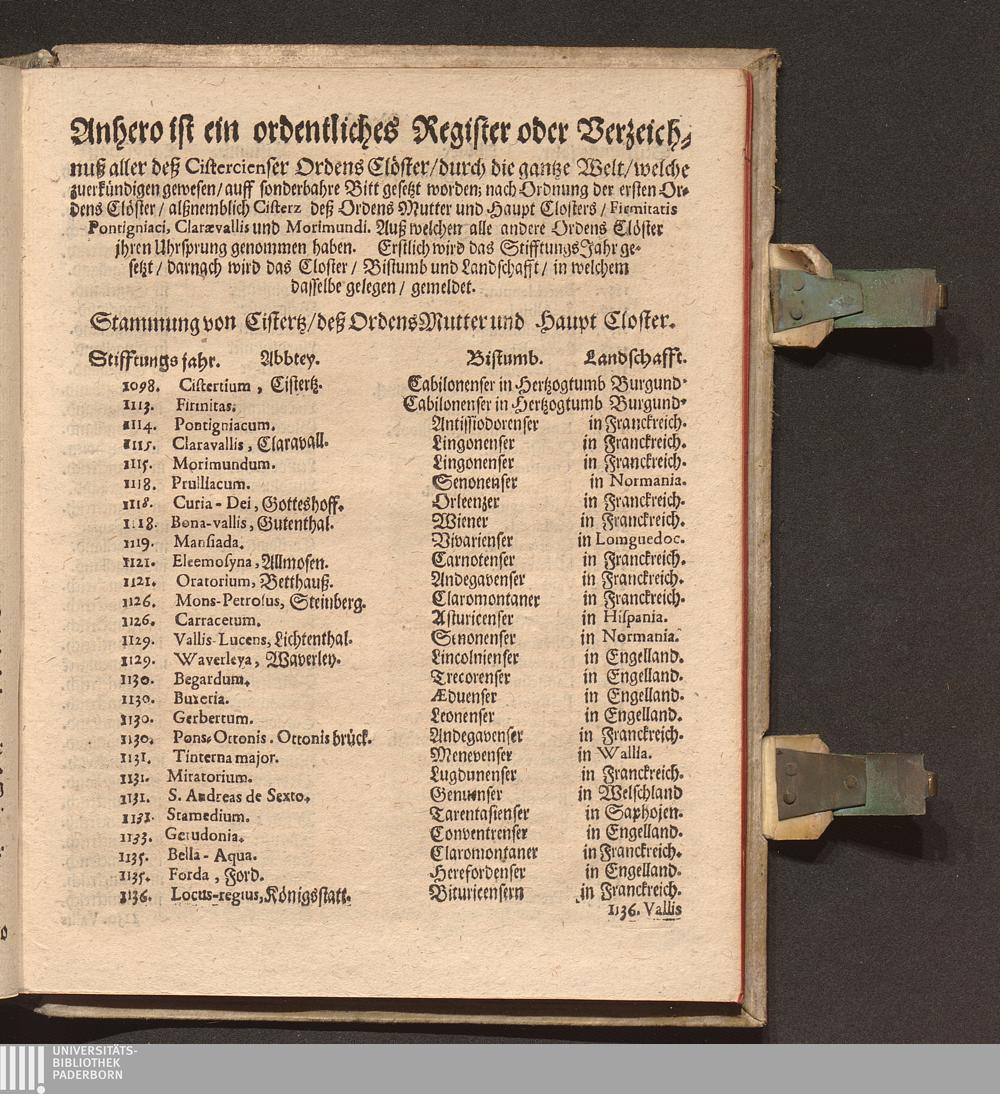 Anhero ist ein ordentliches Register oder Verzeich-
nuß aller deß Cistercienser Ordens Clöster / durch die gantze Welt / welche
zuerkündigen gewesen / auff sonderbahre Bitt gesetzt worden; nach Ordnung der ersten Or-
dens Clöster / alßnemblich Cisterz deß Ordens Mutter und Haupt Closters / Firmitatis
Pontigniaci, Claræ vallis und Morimundi. Auß welchen alle andere Ordens Clöster
ihren Uhrsprung genommen haben. Erstlich wird das Stifftungs Jahr ge-
setzt / darnach wird das Closter / Bistumb und Landschafft / in welchem
dasselbe gelegen / gemeldet.
Stammung von Cistertz / deß Ordens Mutter und Haupt Closter.
Stifftungs jahr. Abbtey. Bistumb. Landschafft.
1098. Cistertium, Cistertz. Cabilonenser in Hertzogtumb Burgund.
1113. Firmitas. Cabilonenser in Hertzogtumb Burgund.
1114. Pontigniacum. Antissiodorenser in Franckreich.
1115. Claravallis, Claravall. Lingonenser in Franckreich.
1115. Morimundum. Lingonenser in Franckreich.
1118. Prulliacum. Senonenser in Normania.
1118. Curia-Dei, Gotteshoff. Orleenzer in Franckreich.
1118. Bona-vallis, Gutenthal. Wiener in Franckreich.
1119. Mansiada. Vivarienser in Lomguedoc.
1121. Eleemosyna, Allmosen. Carnotenser in Franckreich.
1121. Oratorium, Betthauß. Andegavenser in Franckreich.
1126. Mons-Petrosus, Steinberg. Claromontaner in Franckreich.
1126. Carracetum. Asturicenser in Hispania.
1129. Vallis-Lucens, Lichtenthal. Senonenser in Normania.
1129. Waverleya, Waverley. Lincolnienser in Engelland.
1130. Begardum. Trecorenser in Engelland.
1130. Buxeria. Æduenser in Engelland.
1130. Gerbertum. Leonenser in Engelland.
1130. Pons-Ottonis. Ottonis brück. Andegavenser in Franckreich.
1131. Tinterna major. Menevenser in Wallia.
1131. Miratorium. Lugdunenser in Franckreich.
1131. S. Andreas de Sexto. Genuenser in Welschland
1131. Stamedium. Tarentasienser in Saphojen.
1133. Gerudonia. Conventrenser in Engelland.
1135. Bella-Aqua. Claromontaner in Franckreich.
1135. Forda, Ford. Herefordenser in Engelland.
1136. Locus-regius, Königsstatt. Bituricensern in Franckreich.
1136. Vallis
UNIVERSITÄTS-
BIBLIOTHEK
PADERBORN